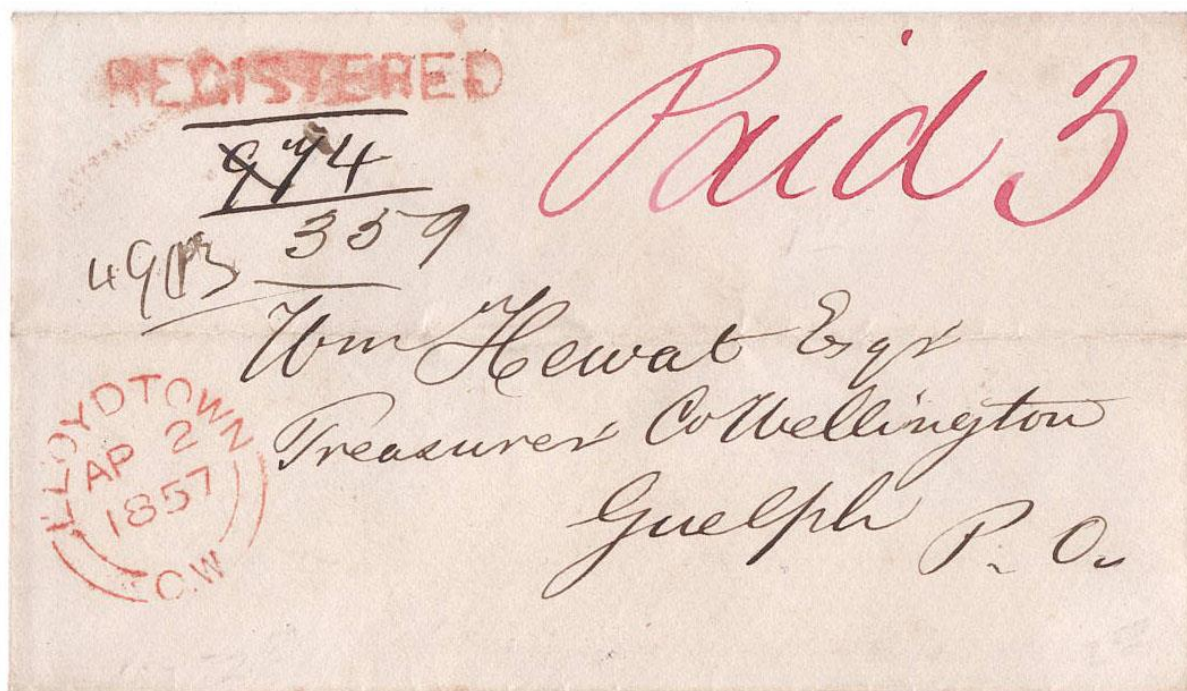 REGISTERED
Paid 3
974
359
Wm Hewat Esqr
Treasurer Co Wellington
Guelph P. O.
LLOYDTOWN
AP 2
1857
C.W